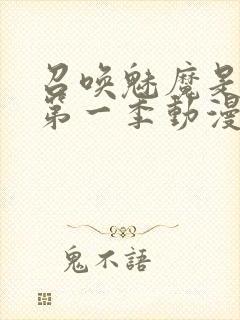 召喚魅魔是
第一季動漫
鬼不語